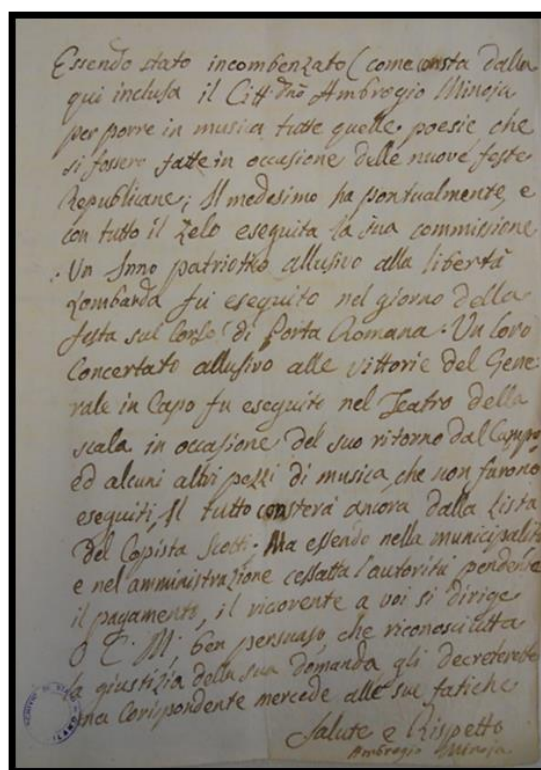 Essendo stato incombenzato (come consta dalla
qui inclusa il Citt.dno Ambrogio Minoja
per porre in musica tutte quelle poesie che
si fossero fatte in occasione delle nuove feste
Republicane; Il medesimo ha pontualmente, e
con tutto il Zelo eseguita la sua commissione
Un Inno patriotico allusivo alla libertà
Lombarda fu eseguito nel giorno della
festa sul Corso di Porta Romana. Un Coro
Concertato allusivo alle vittorie del Gene-
rale in Capo fu eseguito nel Teatro della
scala in occasione del suo ritorno dal Campo
ed alcuni altri pezzi di musica che non furono
eseguiti, Il tutto consterà ancora dalla Lista
del Copista Scotti; Ma essendo nella municipalità
e nel amministrazione cessatta l'autorità pendente
il pagamento, il ricorente a voi si dirige
O C. M. ben persuaso, che riconosciutta
la giustizia della sua domanda gli decreterette
una Corispondente mercede alle sue fatiche
Salute e Rispetto
Ambrogio Minoja